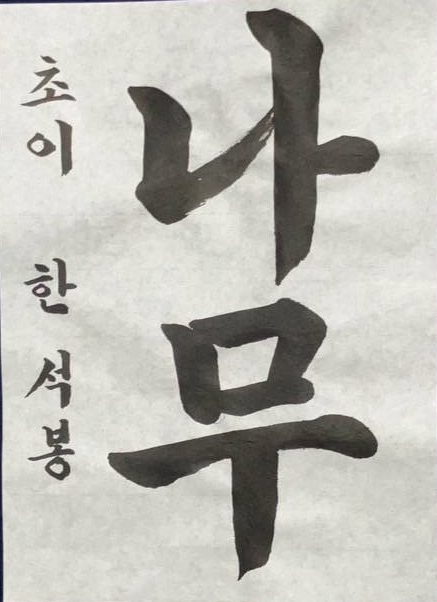 나무
초이 한석봉